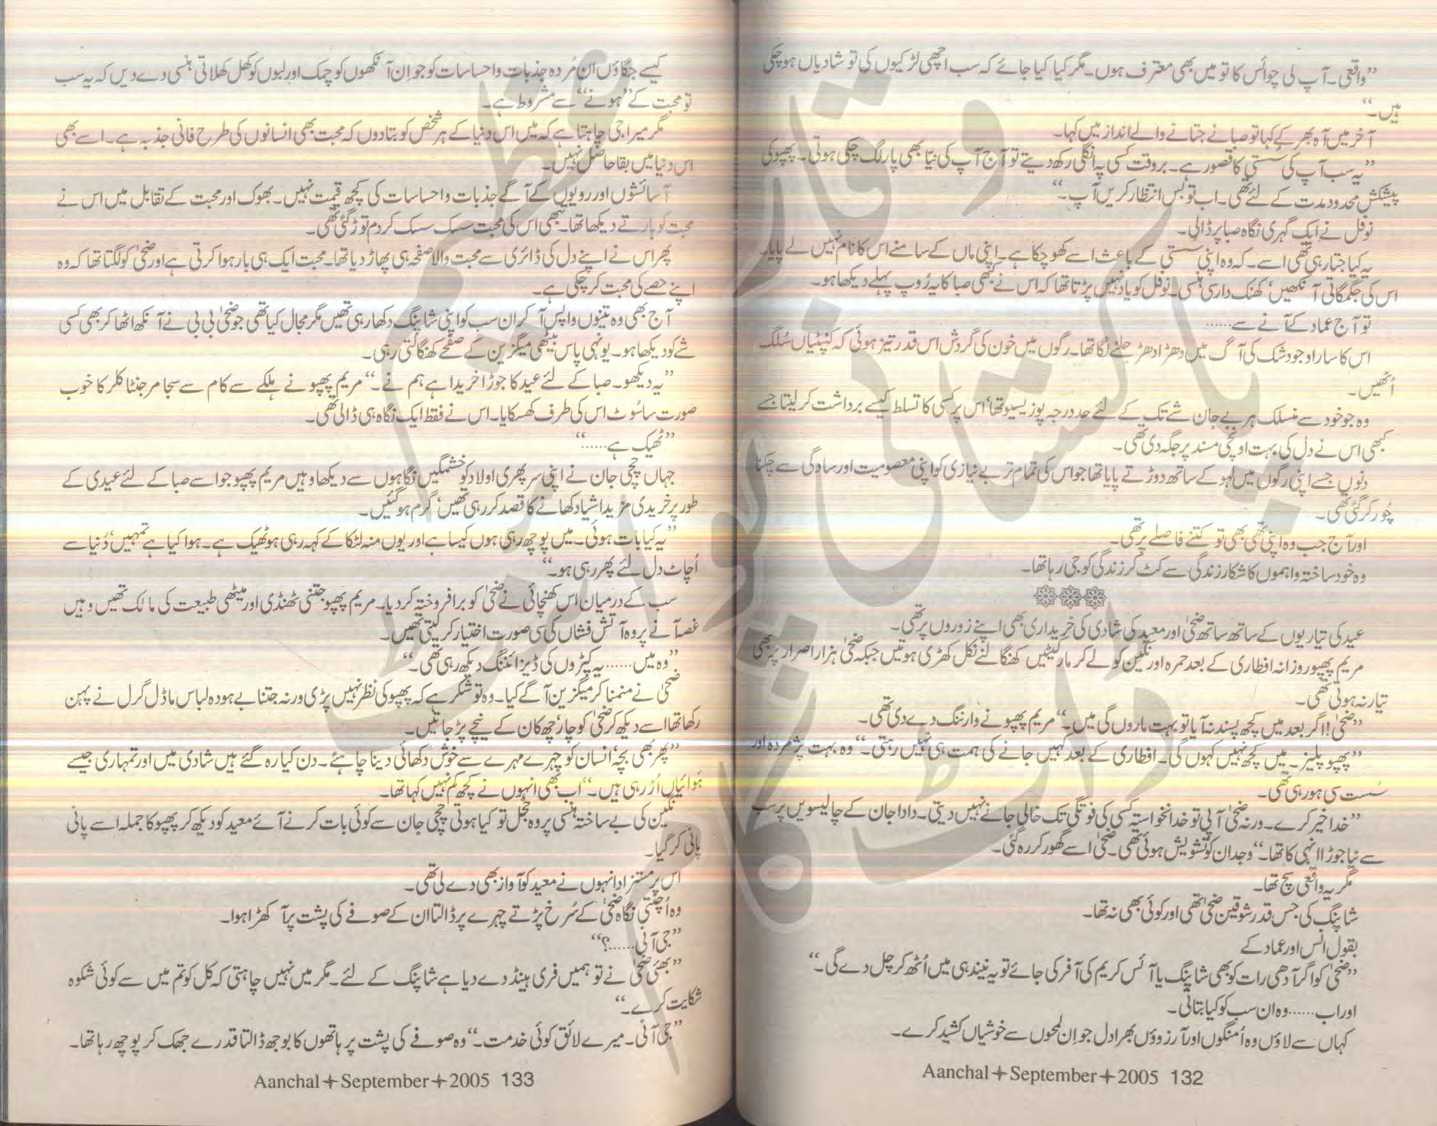 ”واقعی۔ آپ کی چوائس کا تو میں بھی معترف ہوں۔ مگر کیا کیا جائے کہ سب اچھی لڑکیوں کی تو شادیاں ہوچکی
ہیں۔“
آخر میں آہ بھر کے کہا تو صبا نے جتانے والے انداز میں کہا۔
”یہ سب آپ کی سستی کا قصور ہے۔ بروقت کسی پہ انگلی رکھ دیتے تو آج آپ کی نیّا بھی پار لگ چکی ہوتی۔ پھپو کی
پیشکش محدود مدت کے لئے تھی۔ اب تو بس انتظار کریں آپ۔“
نوفل نے ایک گہری نگاہ صبا پر ڈالی۔
یہ کیا جتا رہی تھی اسے۔ کہ وہ اپنی سستی کے باعث اسے کھو چکا ہے۔ اپنی ماں کے سامنے اس کا نام نہیں لے پایا۔
اس کی جگمگاتی آنکھیں‘ کھنک دار سی ہنسی۔ نوفل کو یاد نہیں پڑتا تھا کہ اس نے کبھی صبا کا یہ رُوپ پہلے دیکھا ہو۔
تو آج عماد کے آنے سے......
اس کا سارا وجود شک کی آگ میں دھڑا دھڑ جلنے لگا تھا۔ رگوں میں خون کی گردش اس قدر تیز ہوئی کہ کنپٹیاں سُلگ
اُٹھیں۔
وہ جو خود سے منسلک ہر بے جان شے تک کے لئے حد درجہ پوزیسیو تھا‘ اس پر کسی کا تسلط کیسے برداشت کر لیتا جسے
کبھی اس نے دل کی بہت اونچی مسند پر جگہ دی تھی۔
دنوں جسے اپنی رگوں میں لہو کے ساتھ دوڑتے پایا تھا جو اس کی تمام تر بے نیازی کو اپنی معصومیت اور سادگی سے چکنا
چُور کر گئی تھی۔
اور آج جب وہ اپنی تھی بھی تو کتنے فاصلے پر تھی۔
وہ خود ساختہ واہموں کا شکار زندگی سے کٹ کر زندگی کو جی رہا تھا۔
عید کی تیاریوں کے ساتھ ساتھ ضحیٰ اور معید کی شادی کی خریداری بھی اپنے زوروں پر تھی۔
مریم پھپو روزانہ افطاری کے بعد حمرہ اور نگین کو لے کر مارکیٹیں کھنگالنے نکل کھڑی ہوتیں جبکہ ضحیٰ ہزار اصرار پر بھی
تیار نہ ہوتی تھی۔
”ضحیٰ!! اگر بعد میں کچھ پسند نہ آیا تو بہت ماروں گی میں۔“ مریم پھپو نے وارننگ دے دی تھی۔
”پھپو پلیز۔ میں کچھ نہیں کہوں گی۔ افطاری کے بعد کہیں جانے کی ہمت ہی نہیں رہتی۔“ وہ بہت پژمردہ اور
سُست سی ہو رہی تھی۔
”خدا خیر کرے۔ ورنہ ضحیٰ آپی تو خدانخواستہ کسی کی فوتگی تک خالی جانے نہیں دیتی۔ دادا جان کے چالیسویں پر سب
سے نیا جوڑا انہی کا تھا۔“ وجدان کو تشویش ہوئی تھی۔ ضحیٰ اسے گھور کر رہ گئی۔
مگر یہ واقعی سچ تھا۔
شاپنگ کی جس قدر شوقین ضحیٰ تھی اور کوئی بھی نہ تھا۔
بقول انس اور عماد کے
”ضحیٰ کو اگر آدھی رات کو بھی شاپنگ یا آئس کریم کی آفر کی جائے تو یہ نیند ہی میں اُٹھ کر چل دے گی۔“
اور اب...... وہ ان سب کو کیا بتاتی۔
کہاں سے لاؤں وہ اُمنگوں اور آرزوؤں بھرا دل جو ان لمحوں سے خوشیاں کشید کرے۔
Aanchal✦September✦2005 132
کیسے جگاؤں ان مُردہ جذبات و احساسات کو جو ان آنکھوں کو چمک اور لبوں کو کھل کھلاتی ہنسی دے دیں کہ یہ سب
تو محبت کے ”ہونے“ سے مشروط ہے۔
مگر میرا جی چاہتا ہے کہ میں اس دنیا کے ہر شخص کو بتا دوں کہ محبت بھی انسانوں کی طرح فانی جذبہ ہے۔ اسے بھی
اس دنیا میں بقا حاصل نہیں۔
آسائشوں اور رویوں کے آگے جذبات و احساسات کی کچھ قیمت نہیں۔ بھوک اور محبت کے تقابل میں اس نے
محبت کو ہارتے دیکھا تھا۔ تبھی اس کی محبت سسک سسک کر دم توڑ گئی تھی۔
پھر اس نے اپنے دل کی ڈائری سے محبت والا صفحہ ہی پھاڑ دیا تھا۔ محبت ایک ہی بار ہوا کرتی ہے اور ضحیٰ کو لگتا تھا کہ وہ
اپنے حصے کی محبت کر چکی ہے۔
آج بھی وہ تینوں واپس آ کر ان سب کو اپنی شاپنگ دکھا رہی تھیں مگر مجال کیا تھی جو ضحیٰ بی بی نے آنکھ اٹھا کر بھی کسی
شے کو دیکھا ہو۔ یونہی پاس بیٹھی میگزین کے صفحے کھنگالتی رہی۔
”یہ دیکھو۔ صبا کے لئے عید کا جوڑا خریدا ہے ہم نے۔“ مریم پھپو نے ہلکے سے کام سے سجا مرجنٹا کلر کا خوب
صورت سا سُوٹ اس کی طرف کھسکایا۔ اس نے فقط ایک نگاہ ہی ڈالی تھی۔
”ٹھیک ہے......“
جہاں چچی جان نے اپنی سر پھری اولاد کو خشمگیں نگاہوں سے دیکھا وہیں مریم پھپو جو اسے صبا کے لئے عیدی کے
طور پر خریدی مزید اشیا دکھانے کا قصد کر رہی تھیں‘ گرم ہو گئیں۔
”یہ کیا بات ہوئی۔ میں پوچھ رہی ہوں کیسا ہے اور یوں منہ لٹکا کے کہہ رہی ہو ٹھیک ہے۔ ہوا کیا ہے تمہیں‘ دُنیا سے
اُچاٹ دل لئے پھر رہی ہو۔“
سب کے درمیان اس کھنچائی نے ضحیٰ کو برافروختہ کر دیا۔ مریم پھپو جتنی ٹھنڈی اور میٹھی طبیعت کی مالک تھیں وہیں
غصہ آنے پر وہ آتش فشاں کی سی صورت اختیار کر لیتی تھیں۔
”وہ میں...... یہ کپڑوں کی ڈیزائننگ دیکھ رہی تھی۔“
ضحیٰ نے منمنا کر میگزین آگے کیا۔ وہ تو شکر ہے کہ پھپو کی نظر نہیں پڑی ورنہ جتنا بے ہودہ لباس ماڈل گرل نے پہن
رکھا تھا اسے دیکھ کر ضحیٰ کو چار چھ کان کے نیچے پڑ جاتیں۔
”پھر بھی بچہ‘ انسان کو چہرے مہرے سے خوش دکھائی دینا چاہئے۔ دن کیا رہ گئے ہیں شادی میں اور تمہاری جیسے
ہوائیاں اُڑ رہی ہیں۔“ اب بھی انہوں نے کچھ کم نہیں کہا تھا۔
نگین کی بے ساختہ ہنسی پر وہ خجل تو کیا ہوتی چچی جان سے کوئی بات کرنے آئے معید کو دیکھ کر پھپو کا جملہ اسے پانی
پانی کر گیا۔
اس پر مستزاد انہوں نے معید کو آواز بھی دے لی تھی۔
وہ اُچٹتی نگاہ ضحیٰ کے سُرخ پڑتے چہرے پر ڈالتا ان کے صوفے کی پشت پر آ کھڑا ہوا۔
”جی آنی......؟“
”بھئی ضحیٰ نے تو ہمیں فری ہینڈ دے دیا ہے شاپنگ کے لئے۔ مگر میں نہیں چاہتی کہ کل کو تم میں سے کوئی شکوہ
شکایت کرے۔“
”جی آنی۔ میرے لائق کوئی خدمت۔“ وہ صوفے کی پشت پر ہاتھوں کا بوجھ ڈالتا قدرے جھک کر پوچھ رہا تھا۔
Aanchal✦September✦2005 133